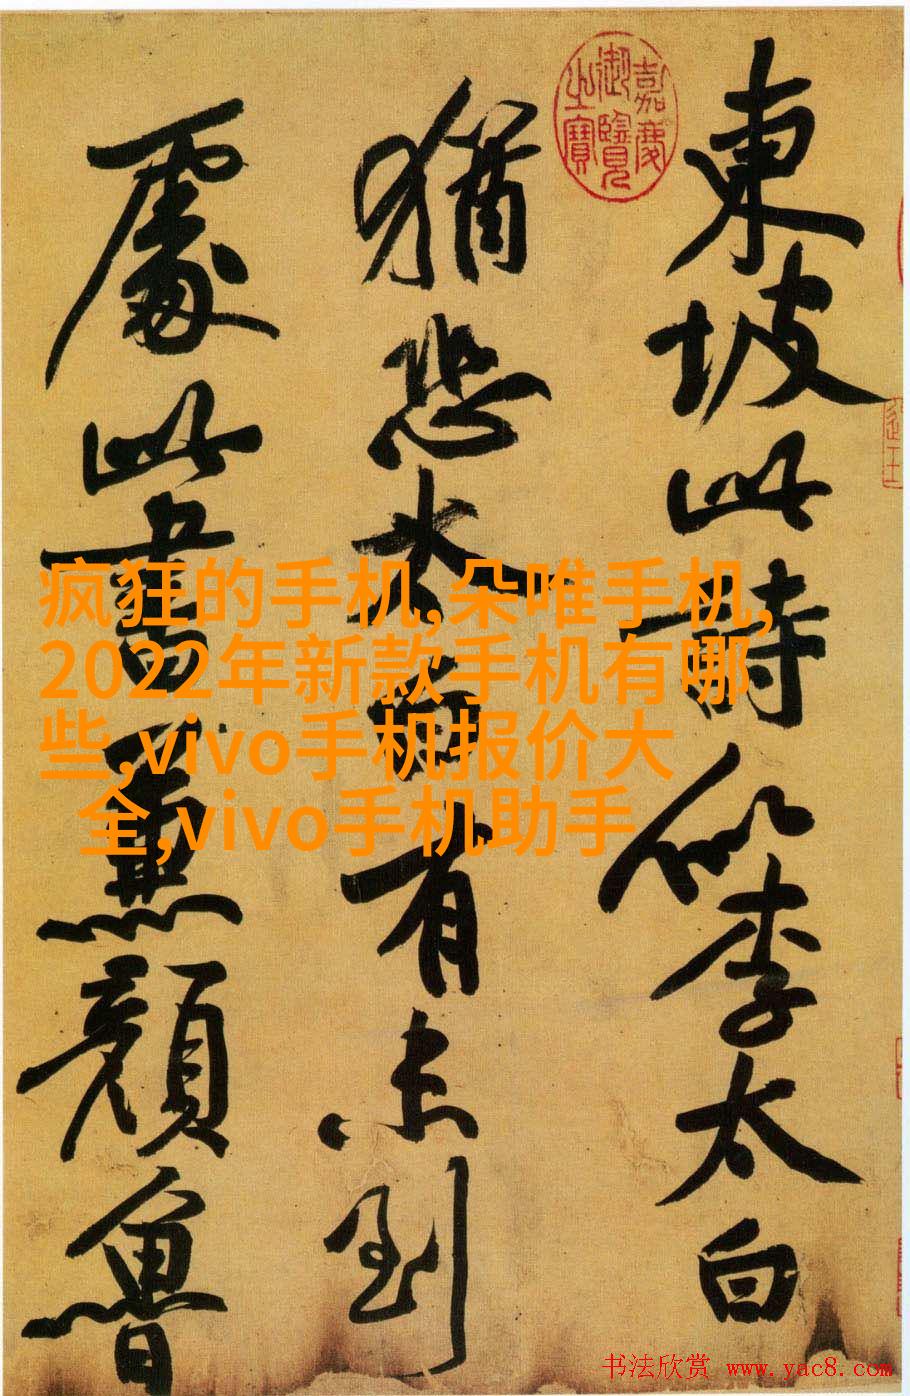 東坡此詩似李太白
猶恐太白有未到
處此書兼顏魯
嘉慶
御覽
之寶
疯狂的手机,朵唯手机,
2022年新款手机有哪
些,vivo手机报价大
全,vivo手机助手
书法欣赏 www.yac8.com